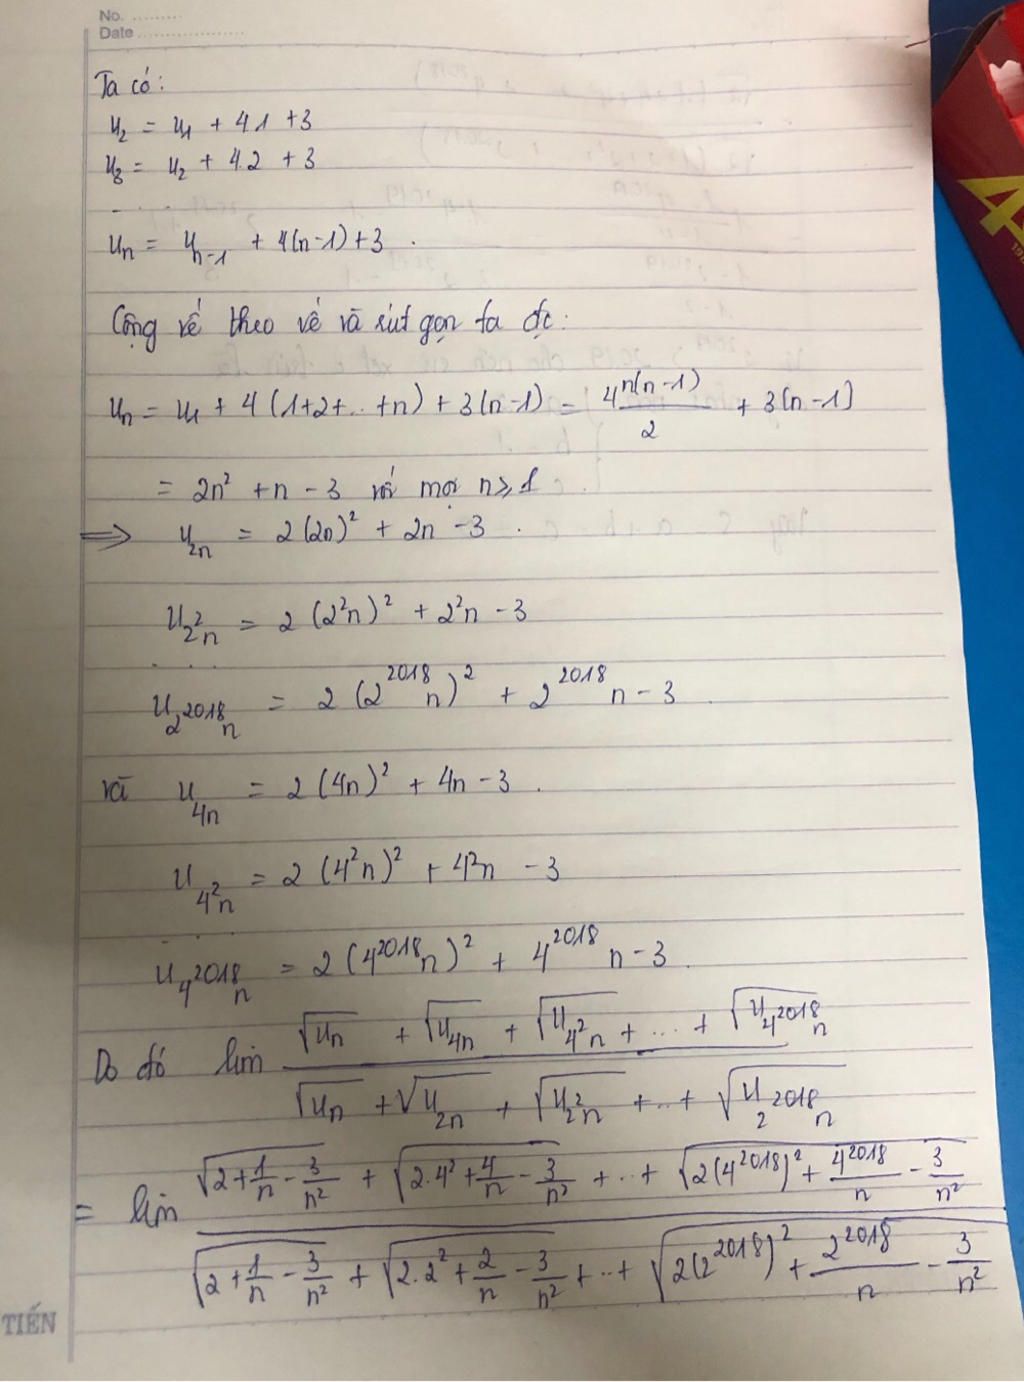 No. .........
Date ...................
Ta có:
u₂ = u₁ + 4.1 + 3
u₃ = u₂ + 4.2 + 3
. . . .
uₙ = uₙ₋₁ + 4(n-1) + 3 .
Cộng vế theo vế và rút gọn ta đc:
uₙ = u₁ + 4 (1+2+...+n) + 3(n-1) = 4 n(n-1)/2 + 3(n-1)
= 2n² + n - 3 với mọi n ≥ 1
⟹ u_{2n} = 2(2n)² + 2n - 3 .
u_{2²n} = 2 (2²n)² + 2²n - 3
. . .
u_{2^{2018}n} = 2 (2^{2018}n)² + 2^{2018}n - 3 .
và u_{4n} = 2 (4n)² + 4n - 3 .
u_{4²n} = 2 (4²n)² + 4²n - 3
. . .
u_{4^{2018}n} = 2 (4^{2018}n)² + 4^{2018}n - 3 .
Do đó lim (√uₙ + √u_{4n} + √u_{4²n} + ... + √u_{4^{2018}n}) / (√uₙ + √u_{2n} + √u_{2²n} + ... + √u_{2^{2018}n})
= lim (√(2 + 1/n - 3/n²) + √(2.4² + 4/n - 3/n²) + ... + √(2(4^{2018})² + 4^{2018}/n - 3/n²)) / (√(2 + 1/n - 3/n²) + √(2.2² + 2/n - 3/n²) + ... + √(2(2^{2018})² + 2^{2018}/n - 3/n²))
TIẾN